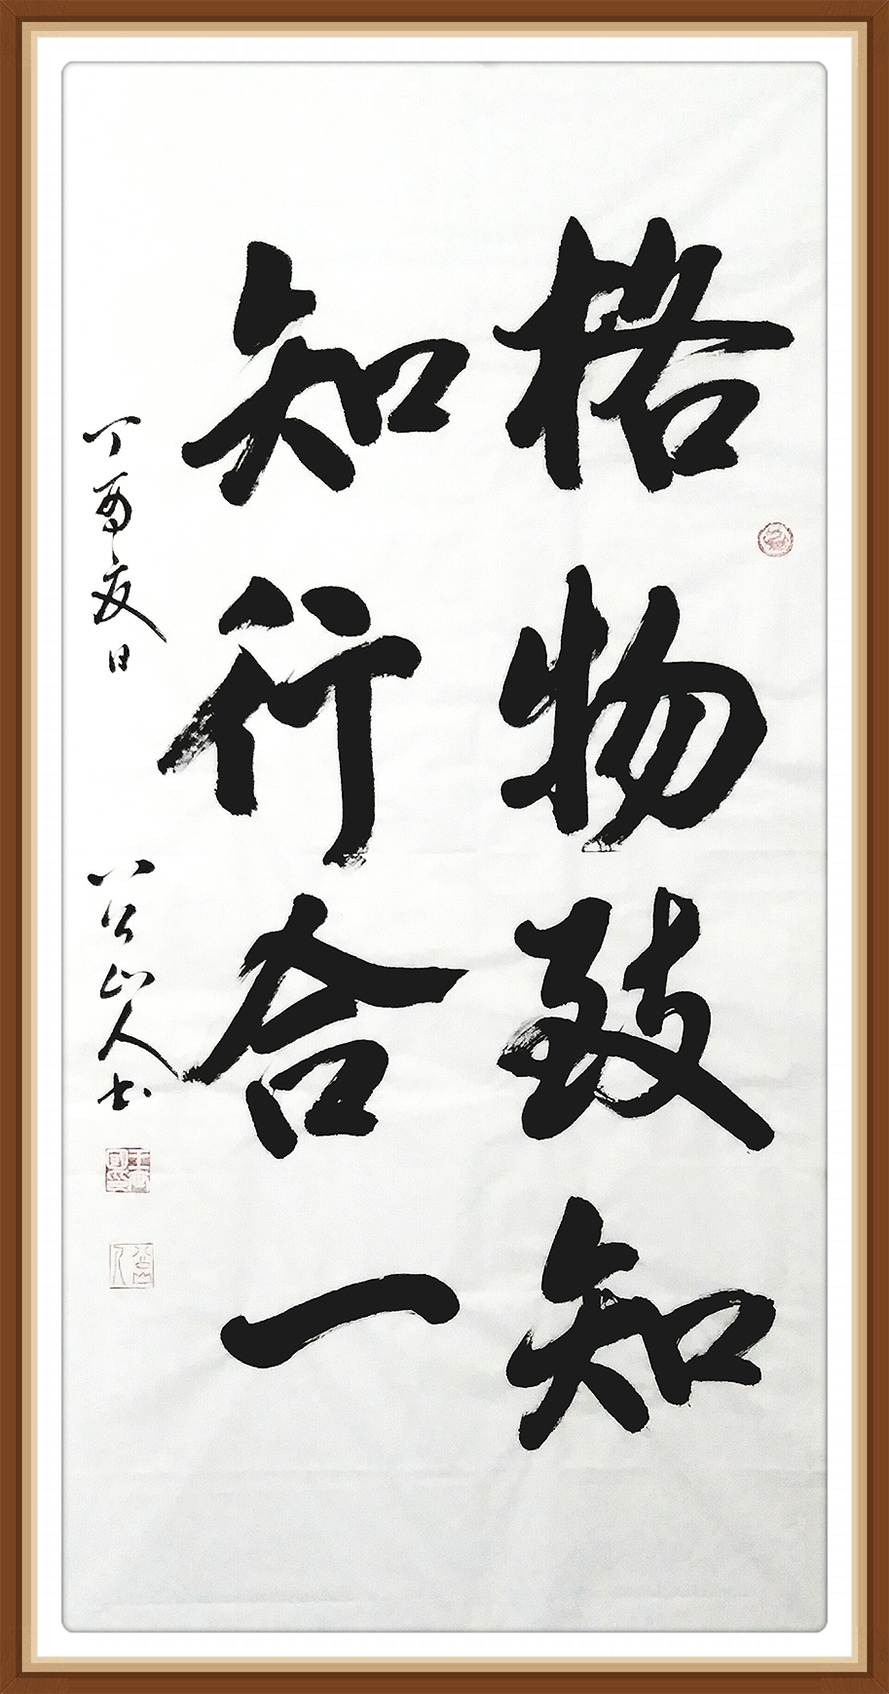 格物致知
知行合一
丁酉夏日
八公山人书